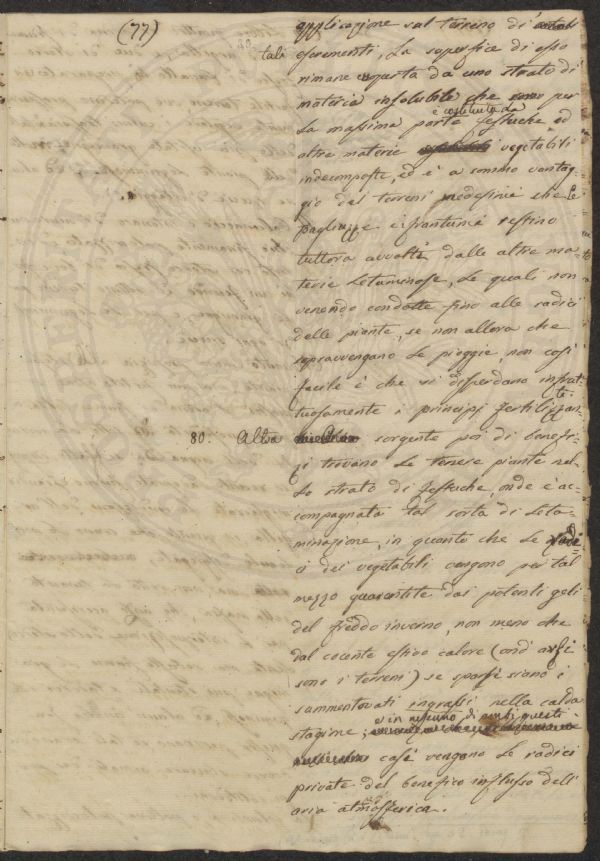 (77)
applicazione sul terreno di
tali escrementi, la superfice di esso
rimane coperta da uno strato di
materia insolubile che per
la massima parte è costituita da festuche ed
altre materie vegetabili
indecomposte, ed è a sommo vantag=
gio dei terreni medesimi che le
pagliuzze e i frantumi restino
tuttora avvolti dalle altre ma=
terie letaminose, le quali non
venendo condotte fino alle radici
delle piante, se non allora che
sopravvengano le pioggie, non così
facile è che si disperdano infrut=
tuosamente i principj fertilizzan=
ti.
80. Altra sorgente poi di benefi=
zj trovano le tenere piante nel=
lo strato di festuche, onde è ac=
compagnata tal sorta di leta=
minazione, in quanto che le radi=
ci dei vegetabili vengono per tal
mezzo guarentite dai potenti geli
del freddo inverno, non meno che
dal cocente estivo calore (ond' arsi
sono i terreni) se sparsi siano i
summentovati ingrassi nella calda
stagione; e in nessuno di questi
casi vengono le radici
private del benefico influsso dell'
aria atmosferica.